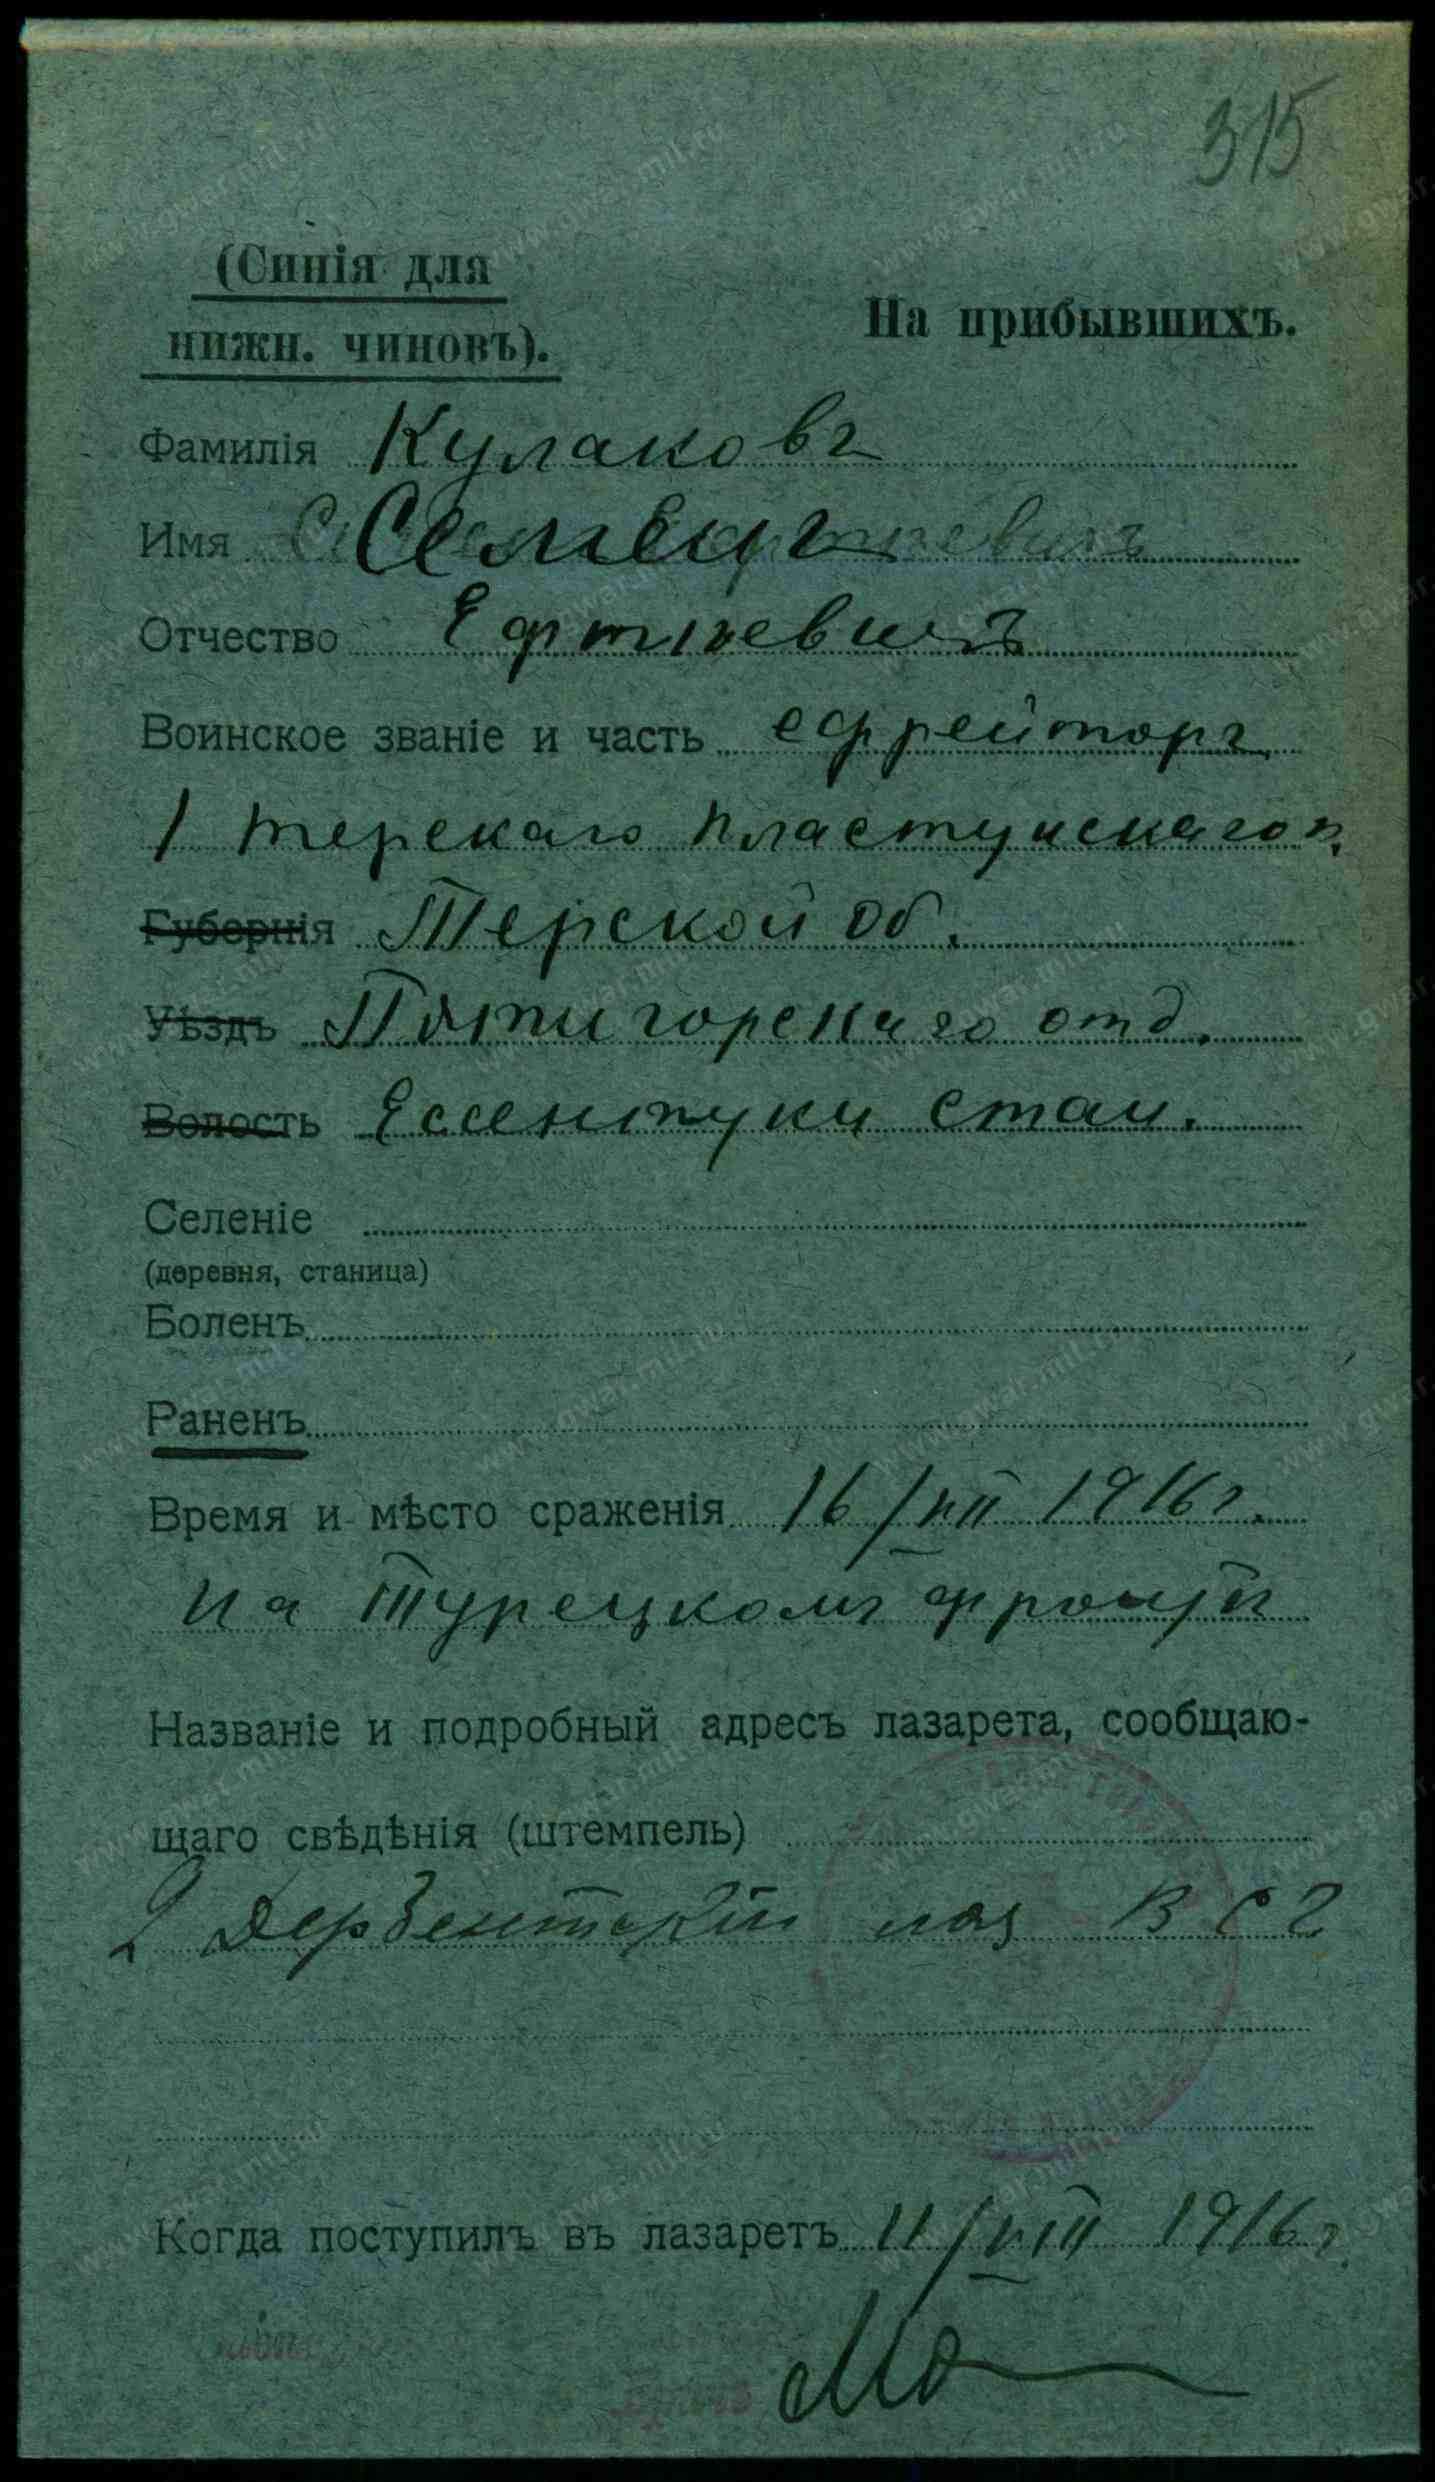 315
(Синія для
нижн. чиновъ).
На прибывшихъ.
Фамилія Кулаковъ
Имя Семенъ
Отчество Ефтіевичъ
Воинское званіе и часть ефрейторъ
1 Терскаго Пластунскаго п.
Губернія Терской Об.
Уѣздъ Пятигорскаго отд.
Волость Ессентуки стан.
Селеніе
(деревня, станица)
Боленъ
Раненъ
Время и мѣсто сраженія 16/VII 1916 г.
на Турецкомъ фронтѣ
Названіе и подробный адресъ лазарета, сообщаю-
щаго свѣдѣнія (штемпель)
2 Дербентскій лаз В С Г
Когда поступилъ въ лазаретъ 11/VIII 1916 г.
www.gwar.mil.ru